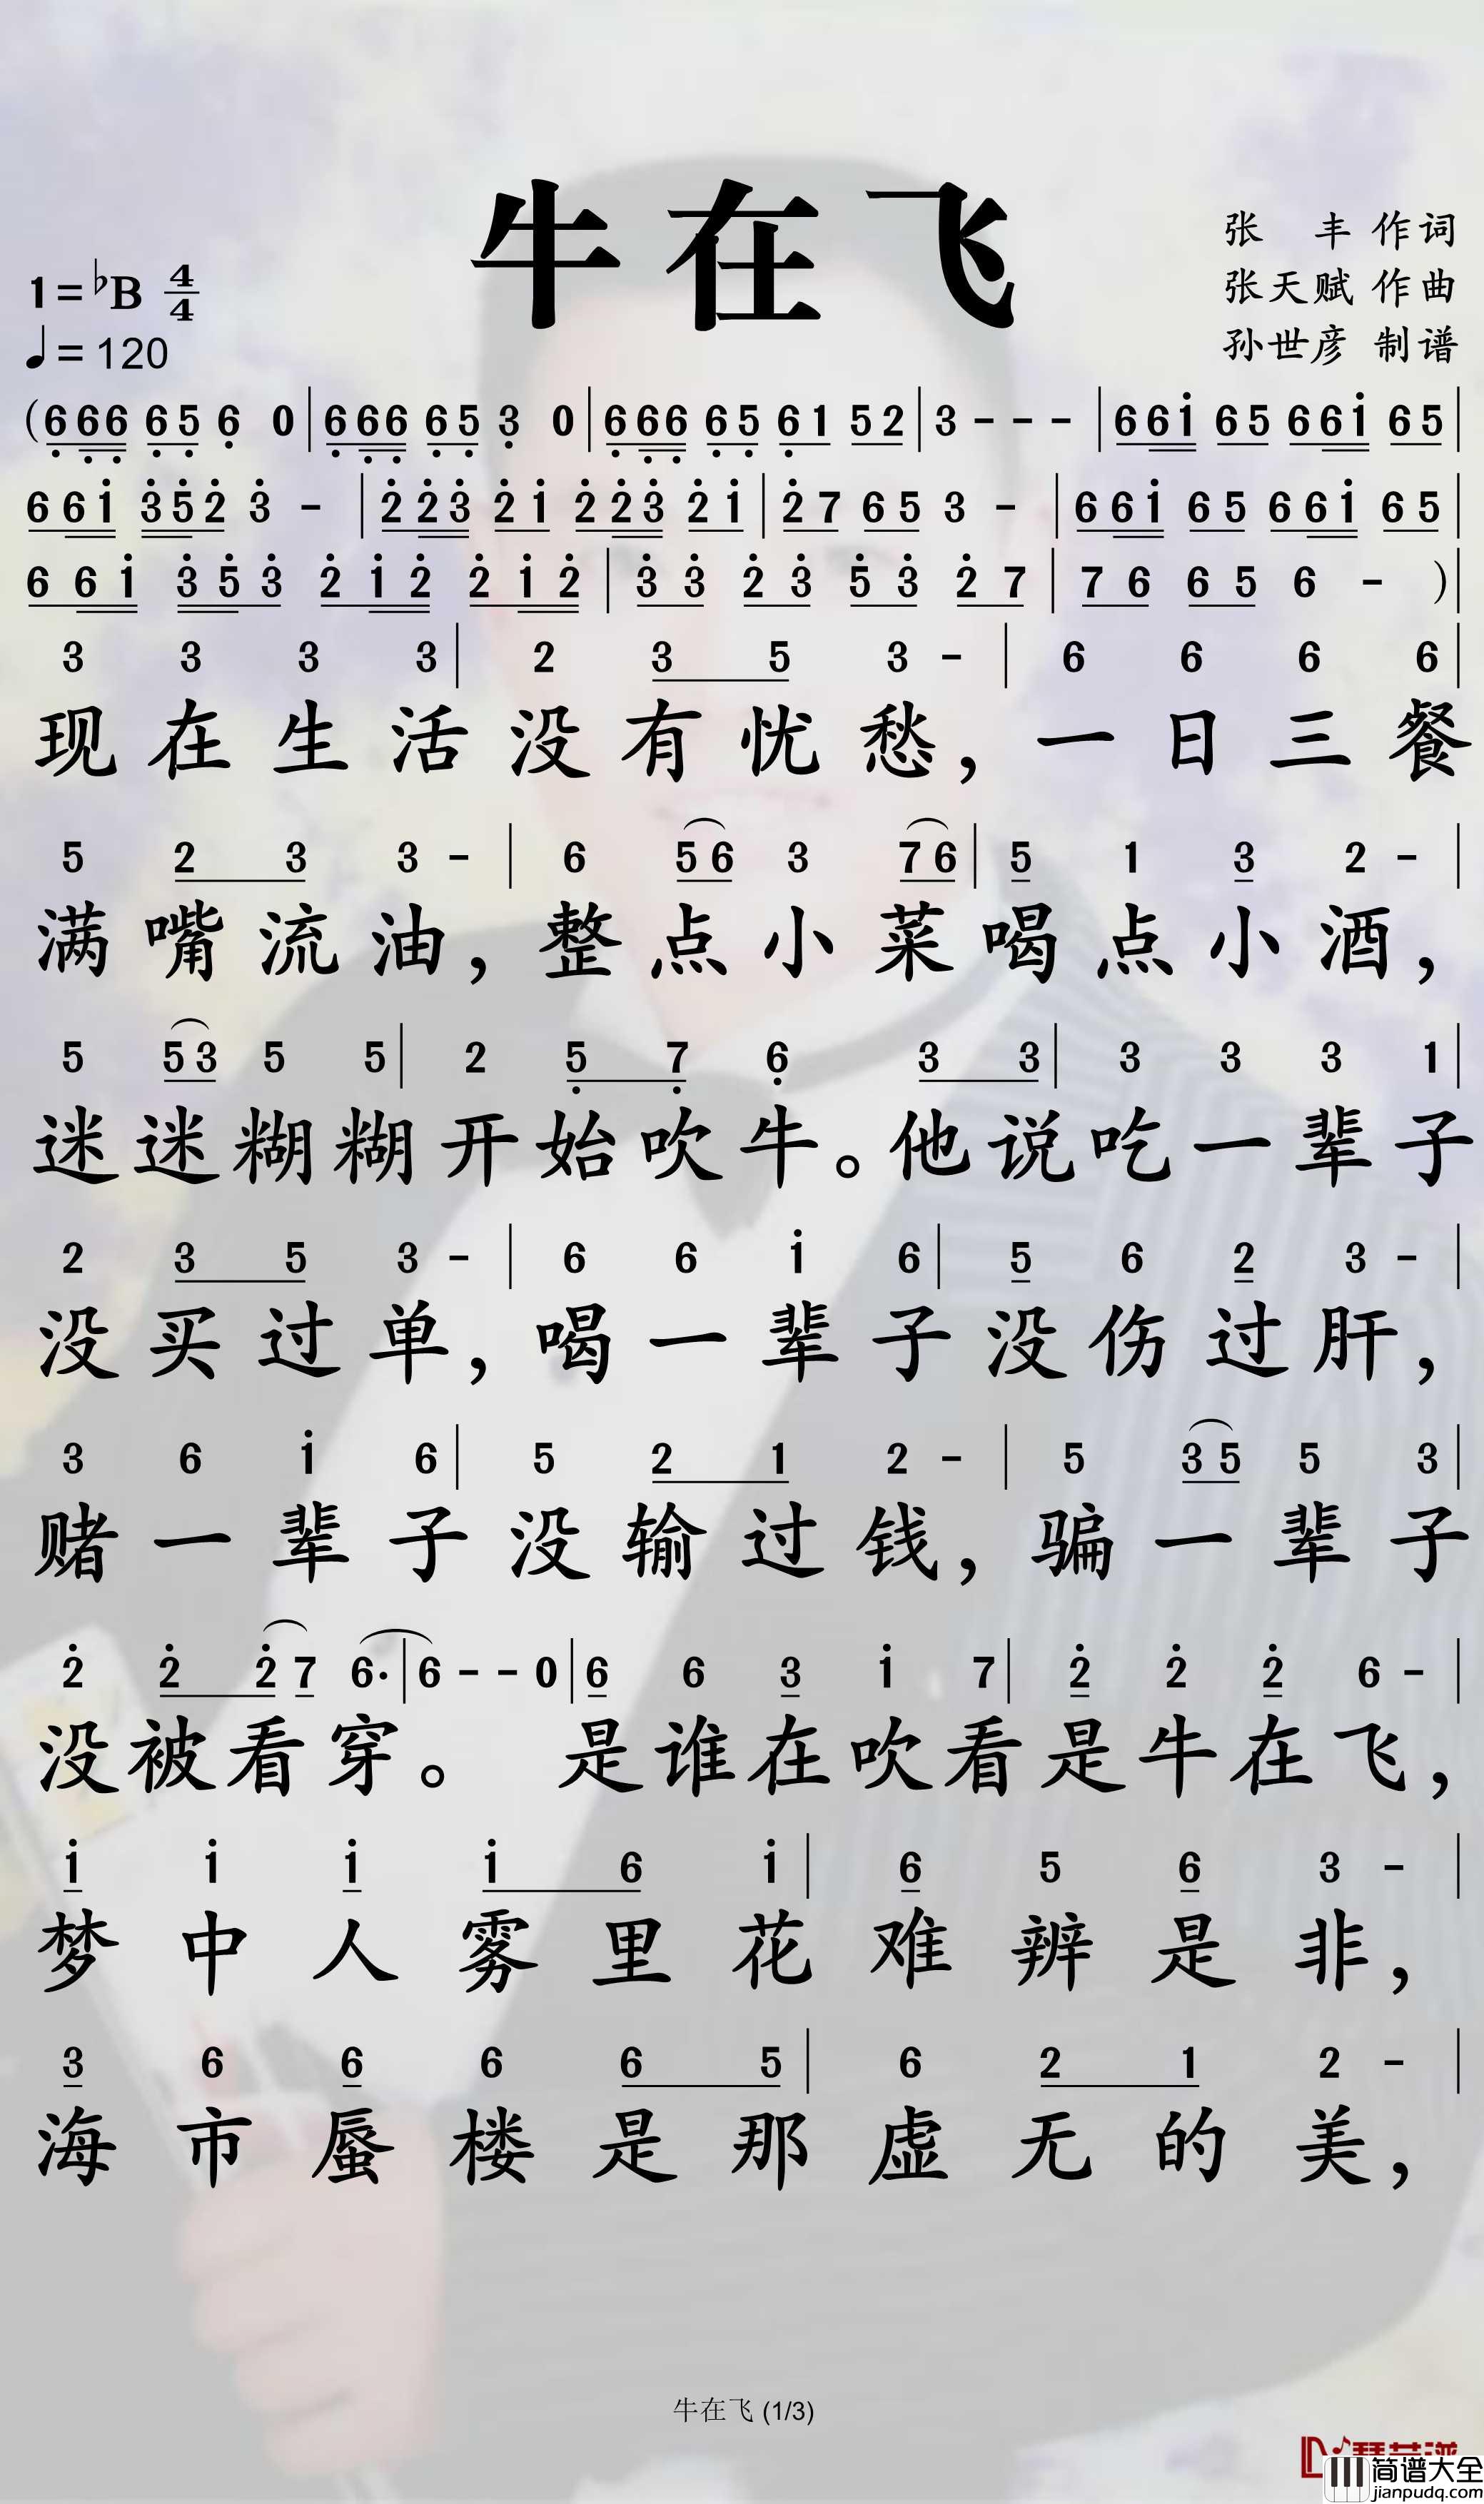 牛在飞
张 丰 作词
1=♭B 4/4
张天赋 作曲
♩=120
孙世彦 制谱
(6̣ 6̣6̣ 6̣5̣ 6̣ 0|6̣ 6̣6̣ 6̣5̣ 3̣ 0|6̣ 6̣6̣ 6̣5̣ 6̣1 52|3 - - -|66i 65 66i 65|
66i 3̇5̇2̇ 3̇ -|2̇2̇3̇ 2̇i 2̇2̇3̇ 2̇i|2̇7 65 3 -|66i 65 66i 65|
66i 3̇5̇3̇ 2̇i2̇ 2̇i2̇|3̇3̇ 2̇3̇ 5̇3̇ 2̇7|76 65 6 - )|
3 3 3 3|2 3 5 3 -|6 6 6 6|
现在生活没有忧愁，一日三餐
5 2 3 3 -|6 56 3 76|5 1 3 2 -|
满嘴流油，整点小菜喝点小酒，
5 53 5 5|2 5̣ 7̣ 6̣ 3 3|3 3 3 1|
迷迷糊糊开始吹牛。他说吃一辈子
2 3 5 3 -|6 6 i 6|5 6 2 3 -|
没买过单，喝一辈子没伤过肝，
3 6 i 6|5 2 1 2 -|5 35 5 3|
赌一辈子没输过钱，骗一辈子
2̇ 2̇ 2̇7 6·|6 - - 0|6 6 3 i 7|2̇ 2̇ 2̇ 6 -|
没被看穿。 是谁在吹看是牛在飞，
i i i i 6 i|6 5 6 3 -|
梦中人雾里花难辨是非，
3 6 6 6 6 5|6 2 1 2 -|
海市蜃楼是那虚无的美，
牛在飞 (1/3)
简谱大全
jianpudq.com